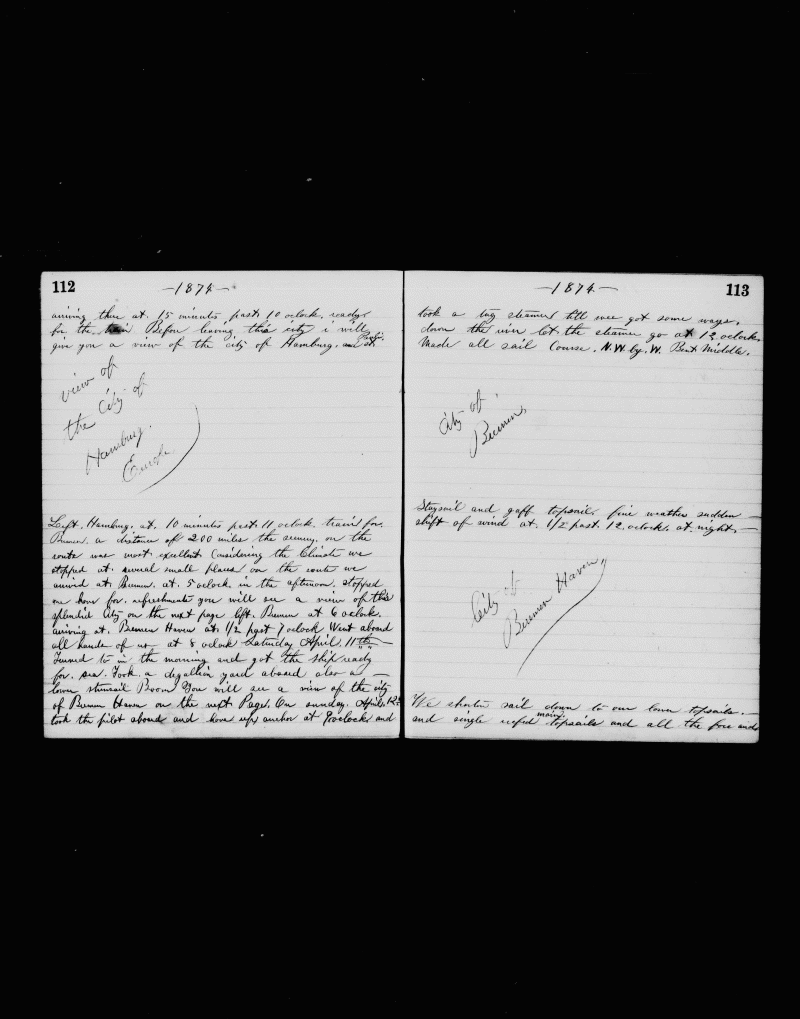 112
—1874—
arriving there at. 15 minutes, past. 10 oclock. ready
for the. train Before leaving this city i will
give you a view of the city of Hamburg. and st.
view of
the City of
Hamburg.
Europe.
Left. Hamburg. at. 10 minutes past. 11 oclock. train for.
Bremen. a distance of 200 miles the scenery. on the
route was most. excellent Considering the Climate we
stopped at. several small places on the route we
arrived at. Bremen. at. 5 oclock in the afternoon. stopped
one hour for. refreshments you will see a view of this
splendid City on the next page left. Bremen at 6 oclock.
arriving at. Bremen Haven at. 1/2 past 7 oclock Went aboard
all hands of us at 8 oclock Saturday April. 11th
Turned to in the morning and got the ship ready
for. sea. Took a yard aboard also a
lower stunsail Boom You will see a view of the city
of Bremen Haven on the next Page. On sunday. April. 12th
took the pilot aboard and hove up anchor at 9 oclock and
113
—1874—
took a tug steamer till wee got some ways.
down the river let the steamer go at 12 oclock.
Made all sail Course. N.W. by. W. Bent Middle.
City of
Bremen.
Staysail and gaff topsail. fine weather sudden
shift of wind at. 1/2 past. 12 oclock. at night.
City of
Bremen Haven
We shorten sail down to our lower topsails.
and single reefed main topsails and all the fore and